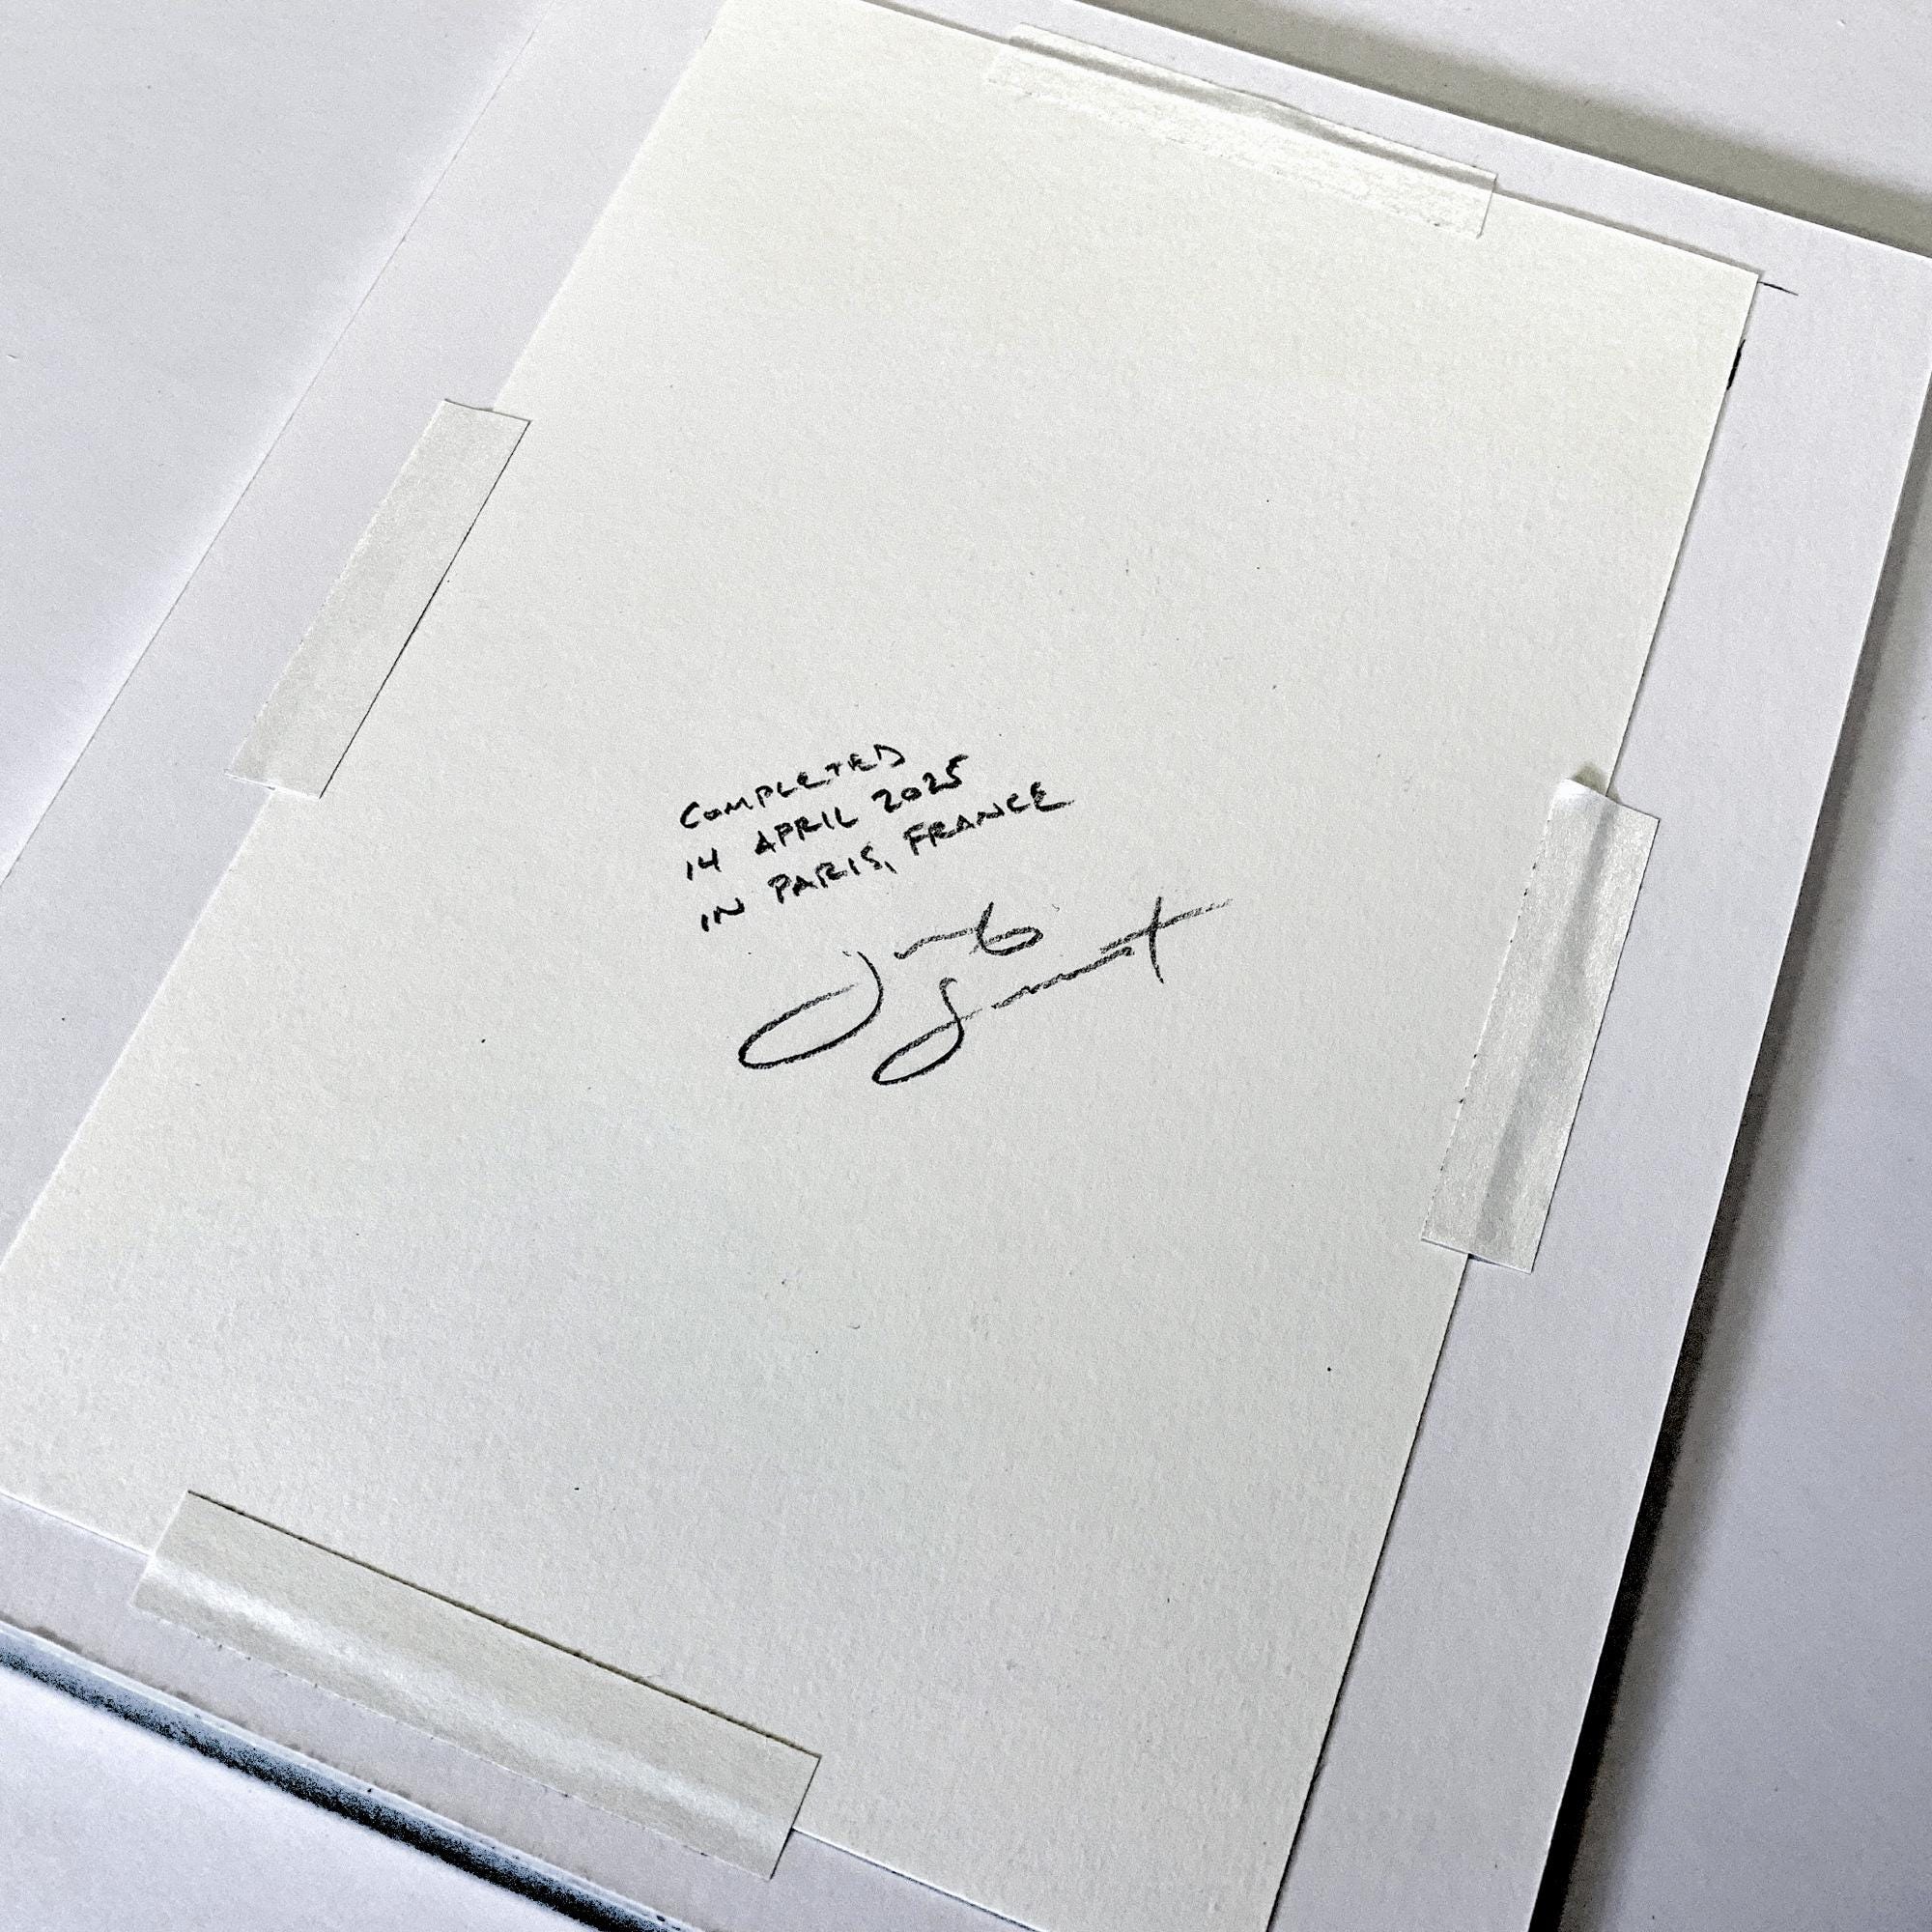 COMPLETED
14 APRIL 2025
IN PARIS, FRANCE